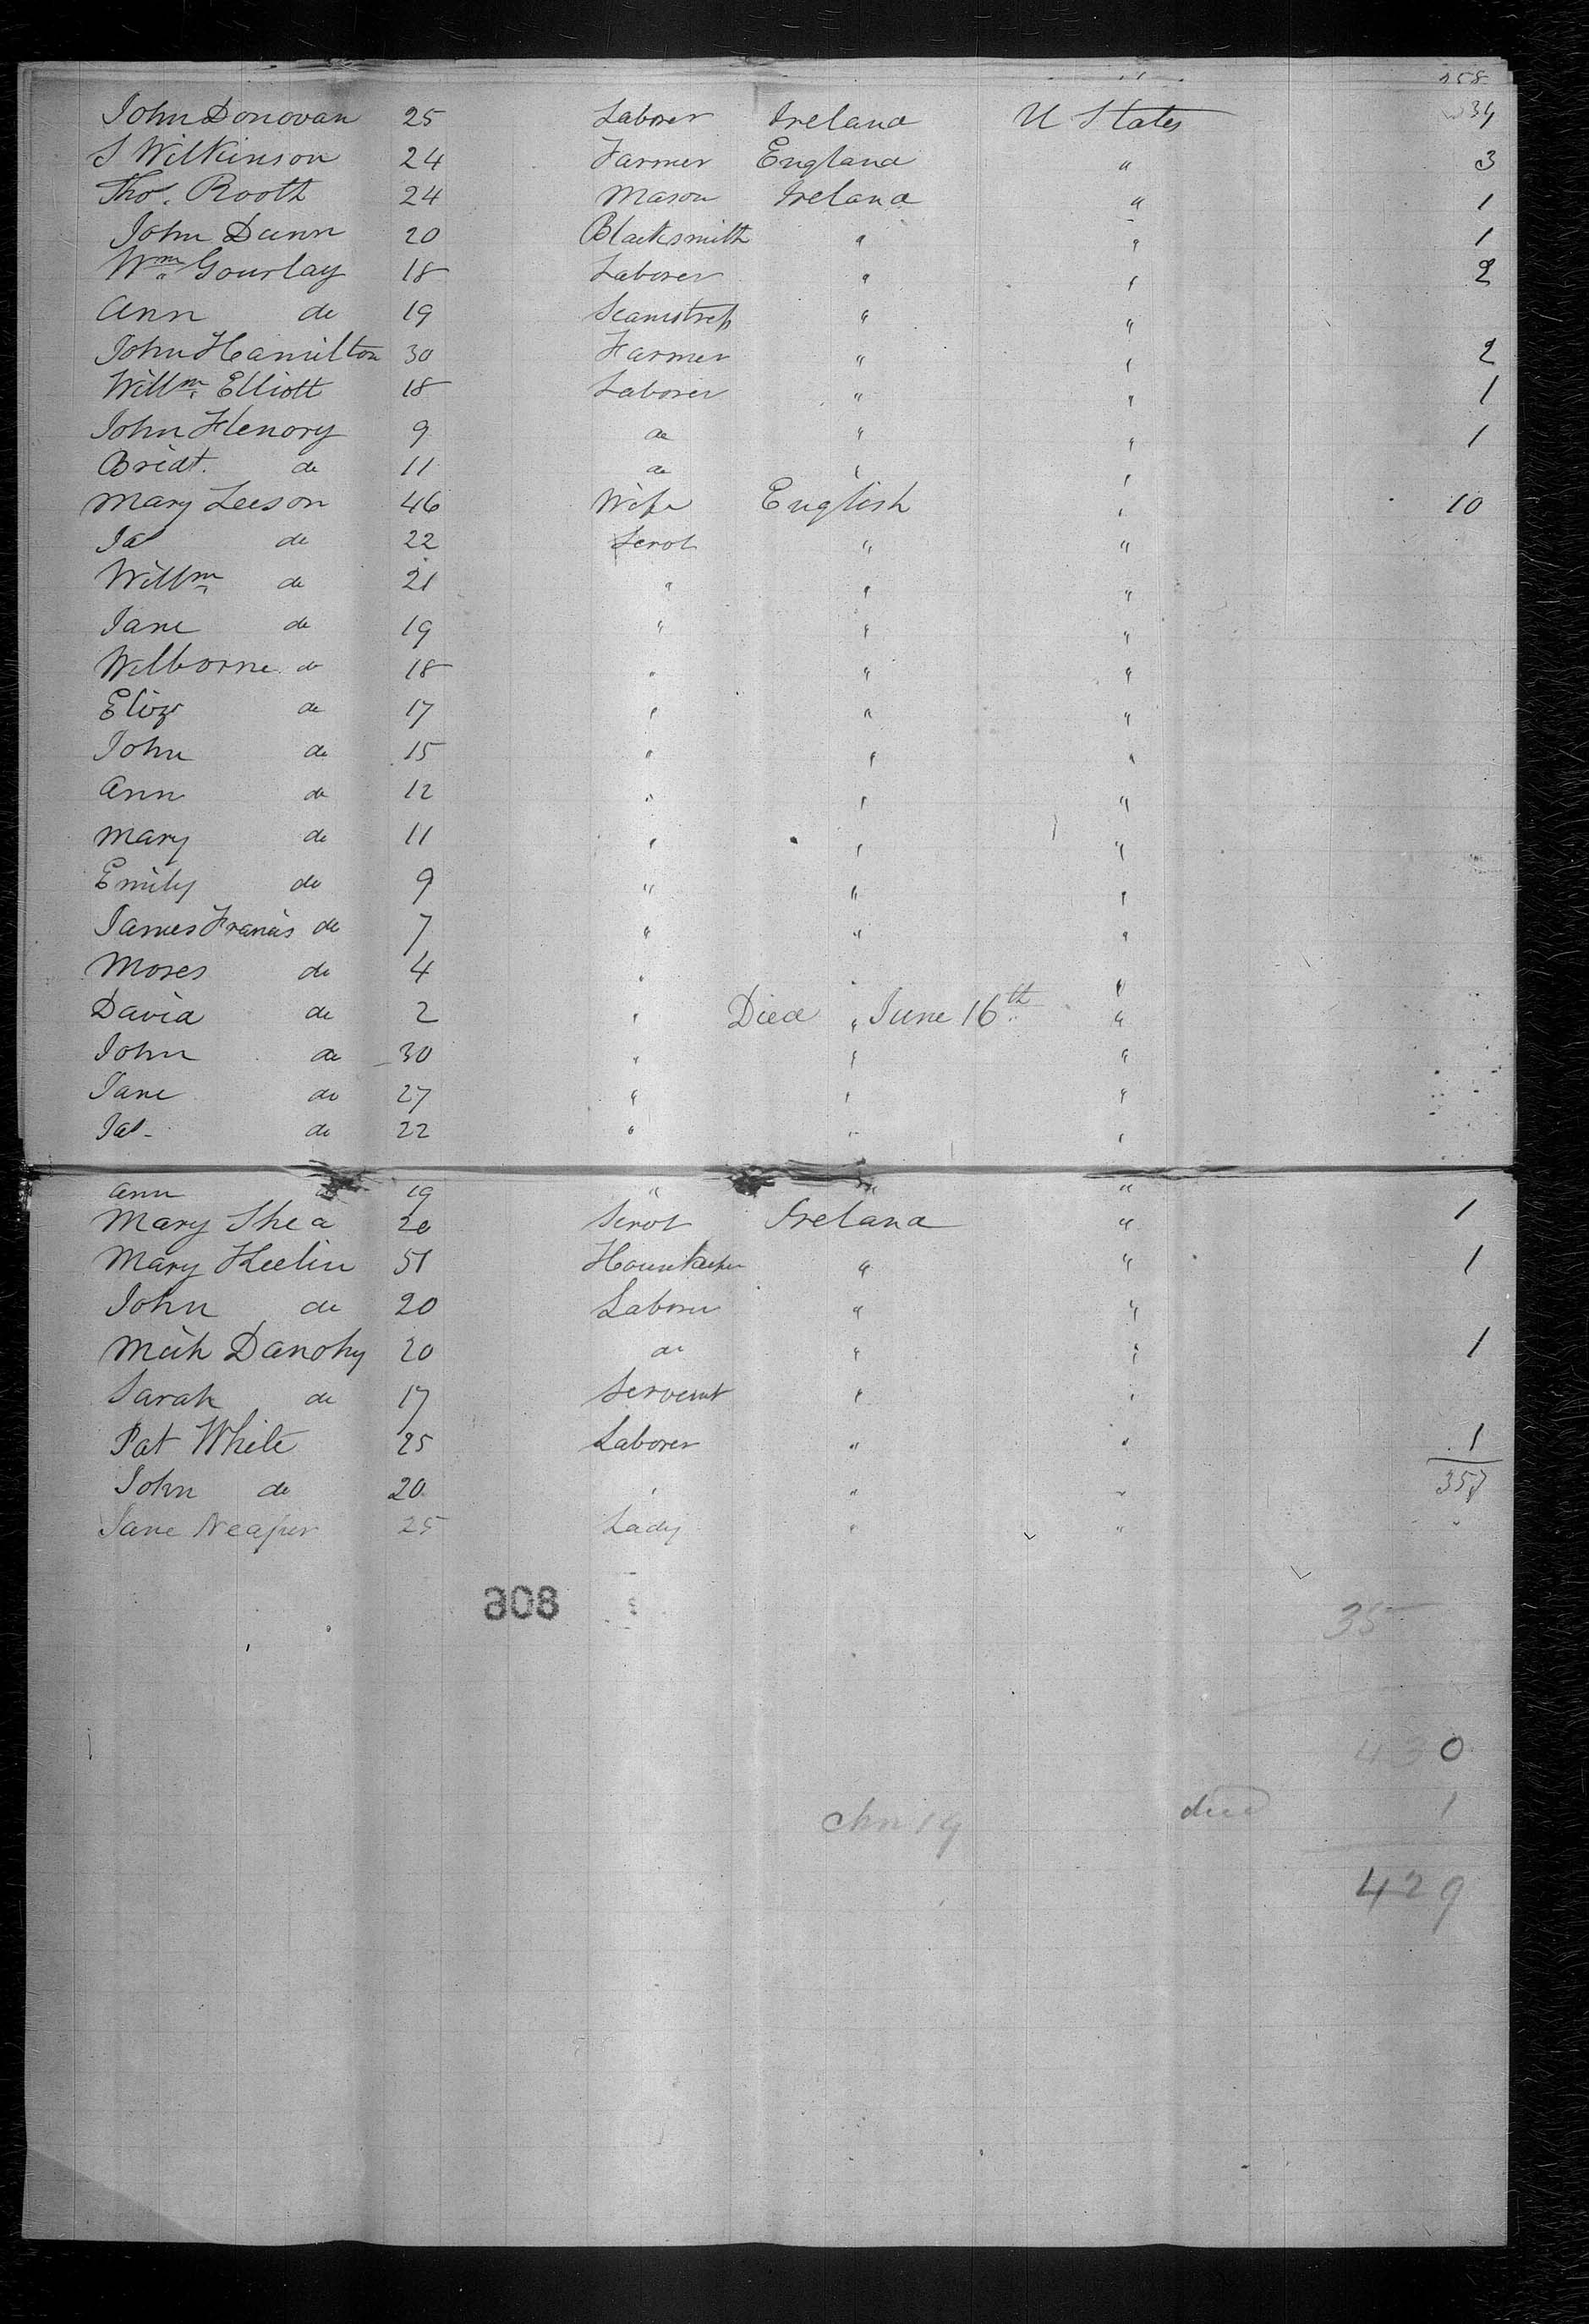 358
John Donovan 25 Laborer Ireland U States 334
S Wilkinson 24 Farmer England " 3
Thos. Rooth 24 Mason Ireland " 1
John Dunn 20 Blacksmith " " 1
Wm Gourlay 18 Laborer " " 2
Ann do 19 Seamstress " "
John Hamilton 30 Farmer " " 2
Willm Elliott 18 Laborer " " 1
John Henory 9 do " " 1
Bridt. do 11 do " "
Mary Leeson 46 Wife English " 10
Jas do 22 Servt " "
Willm do 21 " " "
Jane do 19 " " "
Welborne do 18 " " "
Eliza do 17 " " "
John do 15 " " "
Ann do 12 " " "
Mary do 11 " " "
Emily do 9 " " "
James Francis do 7 " " "
Moses do 4 " " "
David do 2 " Died " June 16th "
John do 30 " " "
Jane do 27 " " "
Jas- do 22 " " "
Ann do 19 " " "
Mary Shea 20 Servt Ireland " 1
Mary Keelin 51 Housekeeper " " 1
John do 20 Laborer " "
Mich Danohy 20 do " " 1
Sarah do 17 Servent " "
Pat White 25 Laborer " " 1
John do 20 " " " 357
Jane 25 Lady " "
908
35
430
died 1
429